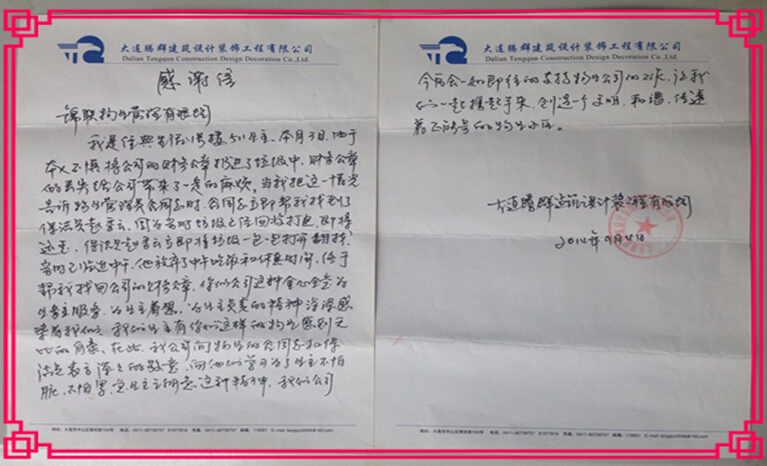 大连腾群建筑设计装饰工程有限公司
Dalian Tengqun Construction Design Decoration Co.,Ltd.
感谢信
锦联物业管理有限公司
我是佳兴生活 楼501业主，本月3日，由于
本人不慎将公司的财务公章扔进了垃圾中，财务公章
的丢失给公司带来了一定的麻烦，当我把这一情况
告诉物业管理员 时， 立即帮我找到了
保洁员赵 云，因为当时垃圾已经回收打包，即将
运走，保洁员赵 云立即将垃圾一包一包打开翻找，
当时已临近中午，他放弃了中午吃饭和休息时间，终于
帮我找回公司的财务章，你们公司这种全心全意为
业主服务，为业主着想，为业主负责的精神深深感
染着我们，我们业主有你们这样的物业感到无
比的自豪，在此，我公司向物业的 和保
洁员表示深深的敬意，向他们学习为了业主不怕
脏，不怕累， 业主 这种精神，我们公司
大连腾群建筑设计装饰工程有限公司
Dalian Tengqun Construction Design Decoration Co.,Ltd.
今后会一如即往的支持物业公司的工作，让我
们一起携起手来，创造一个文明，和谐，传递
着正能量的物业小区。
大连腾群建筑设计装饰工程有限公司
2014年9月4日